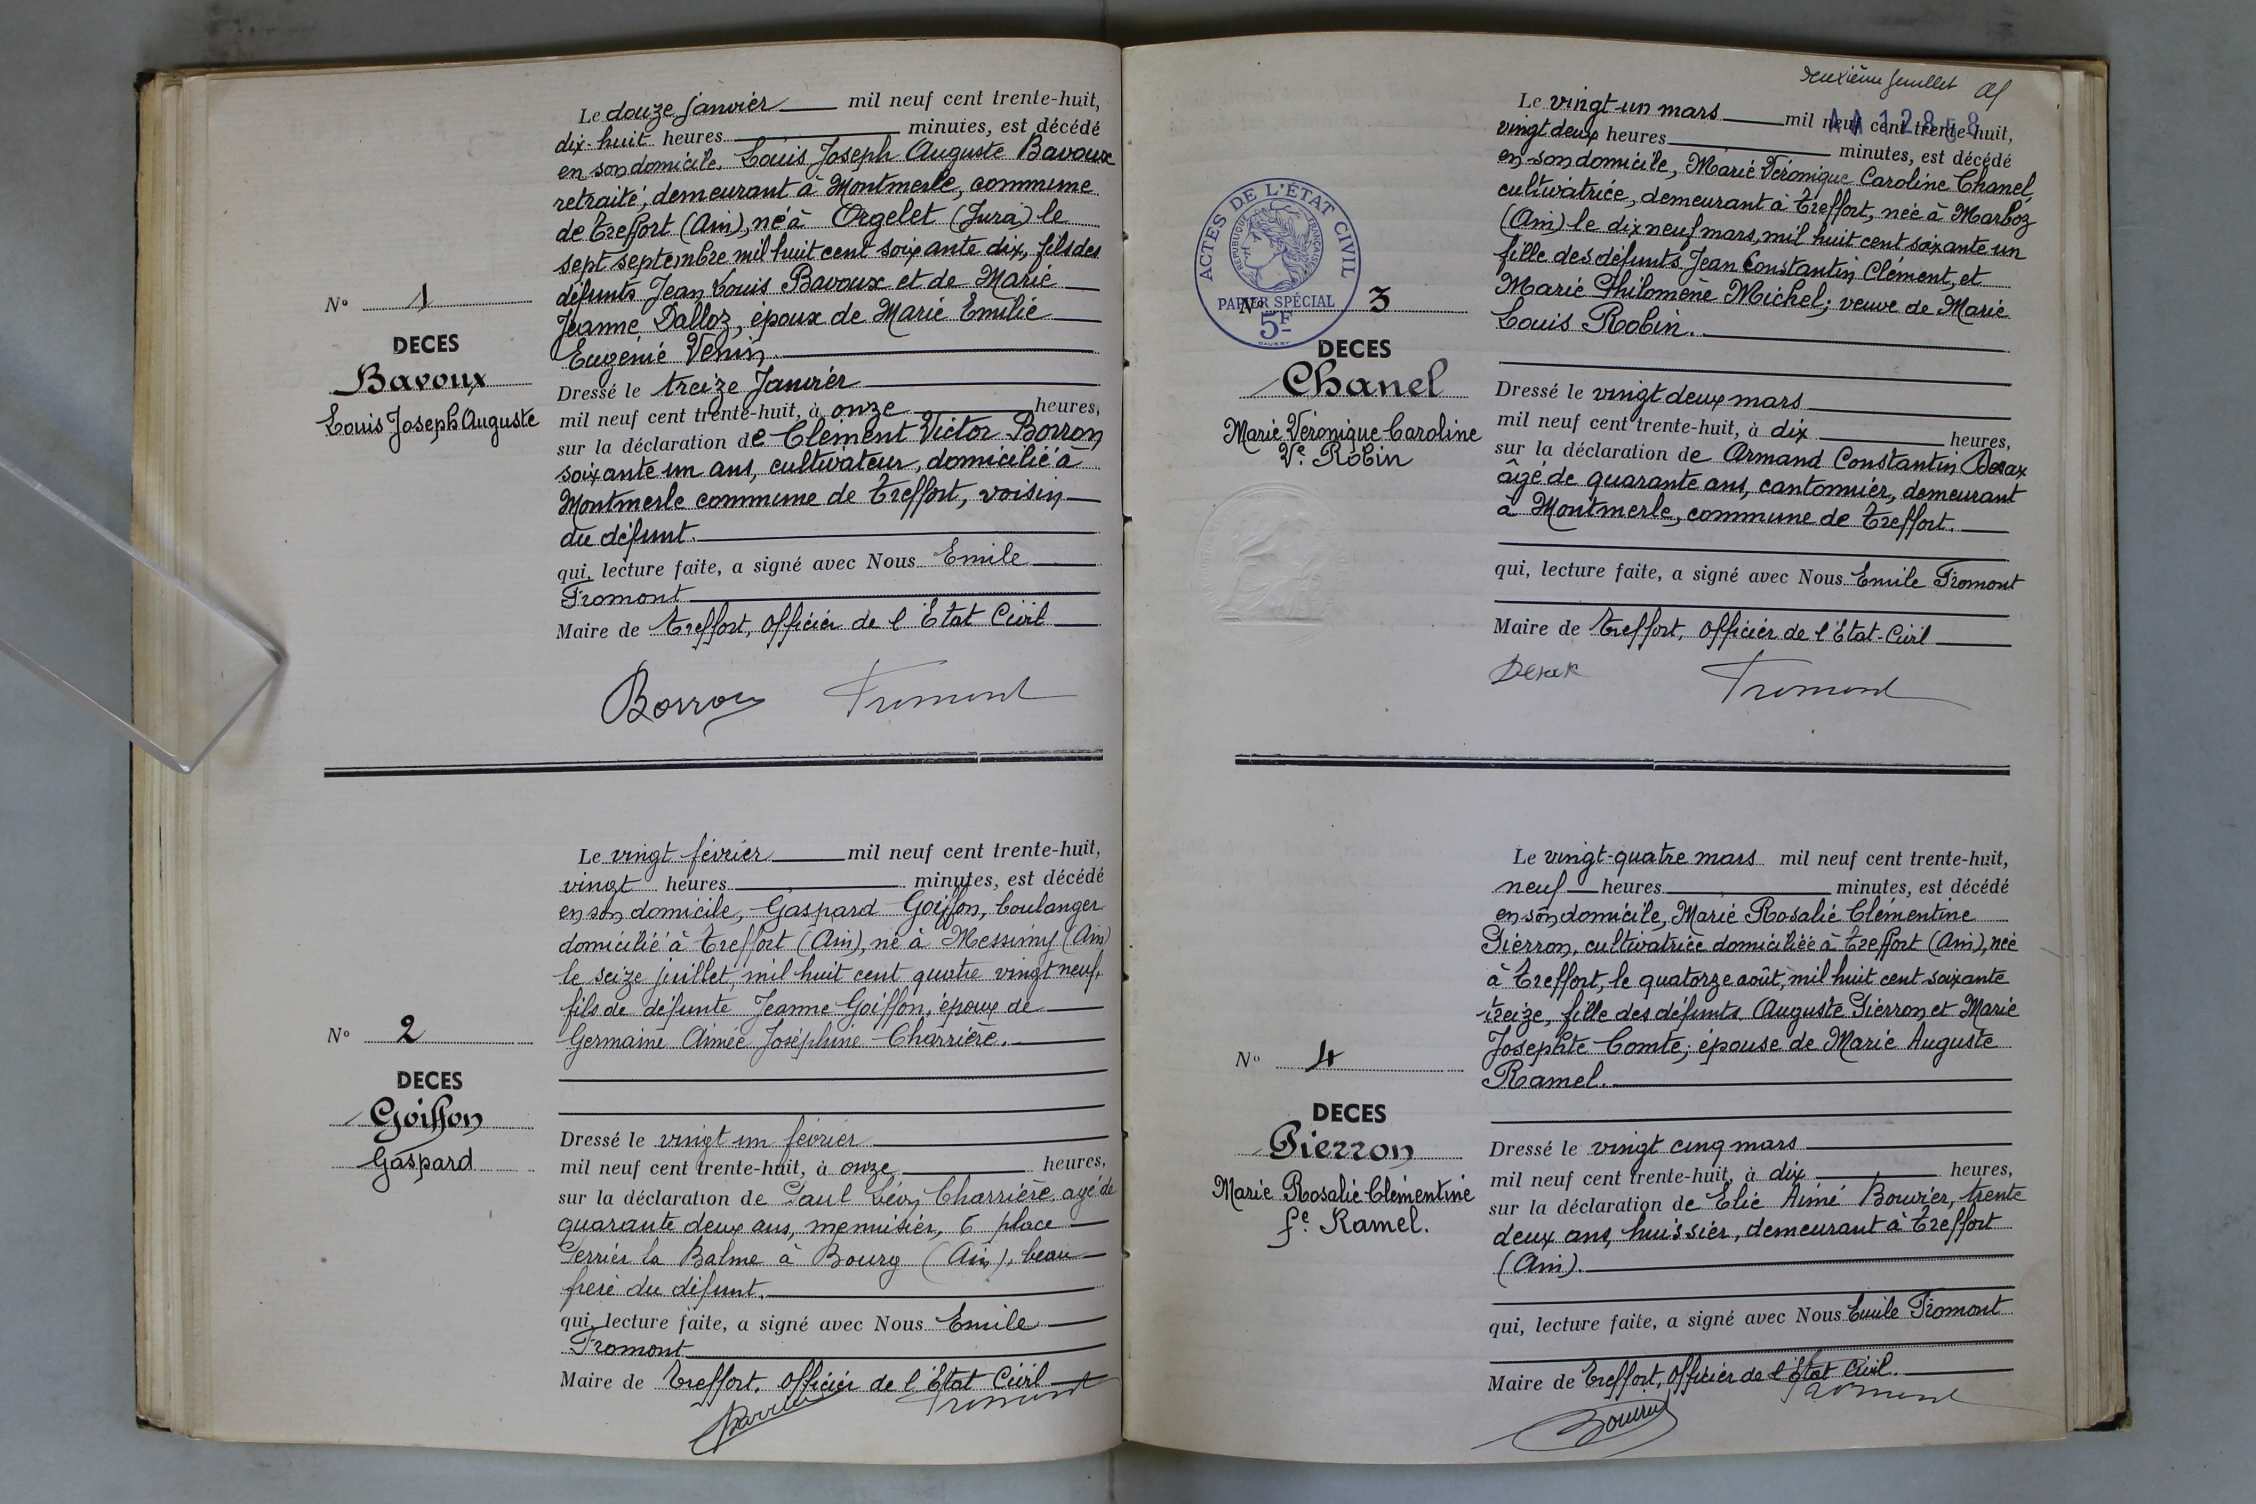 Le douze janvier mil neuf cent trente-huit,
dix-huit heures minutes, est décédé
en son domicile, Louis Joseph Auguste Bavoux
retraité, demeurant à Montmerle, commune
de Treffort (Ain), né à Orgelet (Jura) le
sept septembre mil huit cent soixante dix, fils des
défunts Jean Louis Bavoux et de Marie
Jeanne Dalloz, époux de Marie Emilie
Eugénie Venin.
N° 1
DECES
Bavoux
Louis Joseph Auguste
Dressé le treize Janvier
mil neuf cent trente-huit, à onze heures,
sur la déclaration de Clément Victor Borron
soixante un ans, cultivateur, domicilié à
Montmerle commune de Treffort, voisin
du défunt.
qui, lecture faite, a signé avec Nous Emile
Fromont
Maire de Treffort, Officier de l'Etat Civil
Borron Fromont
Le vingt février mil neuf cent trente-huit,
vingt heures minutes, est décédé
en son domicile, Gaspard Goiffon, boulanger
domicilié à Treffort (Ain), né à Messimy (Ain)
le seize juillet, mil huit cent quatre vingt neuf,
fils de défunte Jeanne Goiffon, époux de
Germaine Aimée Joséphine Charrière.
N° 2
DECES
Goiffon
Gaspard
Dressé le vingt un février
mil neuf cent trente-huit, à onze heures,
sur la déclaration de Paul Léon Charrière, agé de
quarante deux ans, menuisier, 6 place
Perrier la Balme à Bourg (Ain), beau
frère du défunt.
qui, lecture faite, a signé avec Nous Emile
Fromont
Maire de Treffort, Officier de l'Etat Civil
Fromont
deuxième feuillet
Le vingt un mars mil neuf cent trente-huit,
vingt deux heures minutes, est décédé
en son domicile, Marie Véronique Caroline Chanel,
cultivatrice, demeurant à Treffort, née à Marboz
(Ain) le dix neuf mars, mil huit cent soixante un
fille des défunts Jean Constantin Clément, et
Marie Philomène Michel; veuve de Marie
Louis Robin.
ACTES DE L'ÉTAT CIVIL
RÉPUBLIQUE FRANÇAISE
PAPIER SPÉCIAL
5F
N° 3
DECES
Chanel
Marie Véronique Caroline
Ve Robin
Dressé le vingt deux mars
mil neuf cent trente-huit, à dix heures,
sur la déclaration de Armand Constantin
âgé de quarante ans, cantonnier, demeurant
à Montmerle, commune de Treffort.
qui, lecture faite, a signé avec Nous Emile Fromont
Maire de Treffort, Officier de l'Etat-Civil
Fromont
Le vingt-quatre mars mil neuf cent trente-huit,
neuf heures minutes, est décédé
en son domicile, Marie Rosalie Clémentine
Pierron, cultivatrice domiciliée à Treffort (Ain), née
à Treffort, le quatorze août, mil huit cent soixante
treize, fille des défunts Auguste Pierron et Marie
Josephte Comte; épouse de Marie Auguste
Ramel.
N° 4
DECES
Pierron
Marie Rosalie Clémentine
fe Ramel.
Dressé le vingt cinq mars
mil neuf cent trente-huit, à dix heures,
sur la déclaration de Elie Aimé Bouvier, trente
deux ans, huissier, demeurant à Treffort
(Ain).
qui, lecture faite, a signé avec Nous Emile Fromont
Maire de Treffort, Officier de l'Etat Civil.
Bouvier Fromont